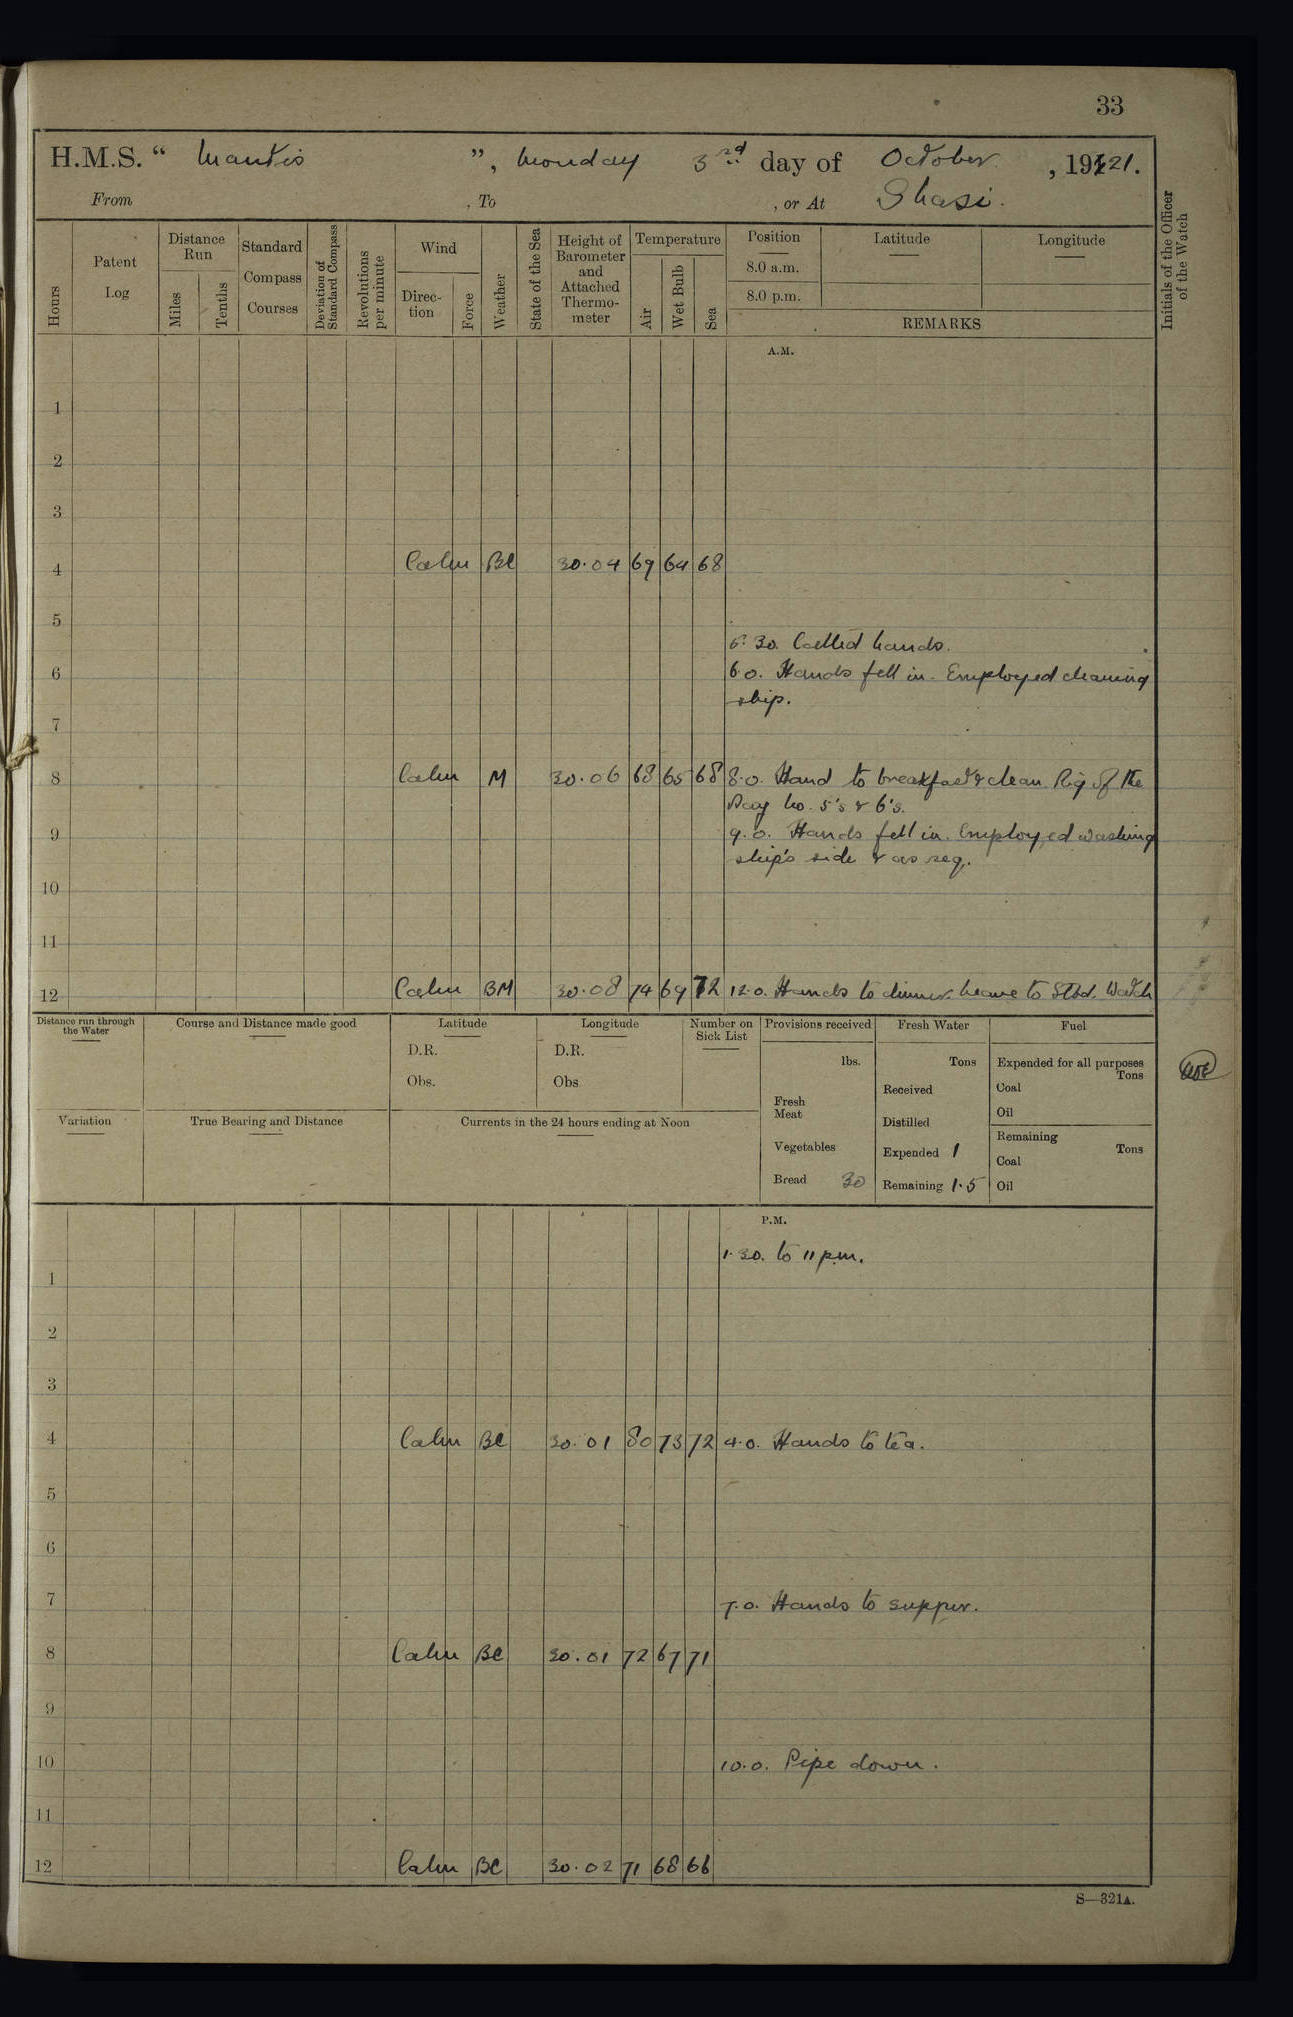 33
H.M.S. “ Mantis ”, Monday 3rd day of October, 1921.
From , To , or At Shasi.
Hours
Patent Log
Distance Run
Miles
Tenths
Standard Compass Courses
Deviation of Standard Compass
Revolutions per minute
Wind
Direc-tion
Force
Weather
State of the Sea
Height of Barometer and Attached Thermo-meter
Temperature
Air
Wet Bulb
Sea
Position
8.0 a.m.
8.0 p.m.
Latitude
Longitude
REMARKS
Initials of the Officer of the Watch
A.M.
1
2
3
4 Calm BC 30.04 69 64 68
5
5.30. Called hands.
6 6.0. Hands fell in. Employed cleaning
ship.
7
8 Calm M 30.06 68 65 68 8.0. Hand to breakfast & clean. Rig of the
Day No. 5's & 6's.
9 9.0. Hands fell in. Employed washing
ship's side & as req.
10
11
12 Calm BM 30.08 74 69 72 12.0. Hands to dinner. Leave to Stbd. Watch
Distance run through the Water
Course and Distance made good
Latitude
D.R.
Obs.
Longitude
D.R.
Obs
Number on Sick List
Provisions received
lbs.
Fresh Meat
Vegetables
Bread 30
Fresh Water
Tons
Received
Distilled
Expended 1
Remaining 1.5
Fuel
Expended for all purposes
Tons
Coal
Oil
Remaining
Tons
Coal
Oil
Variation
True Bearing and Distance
Currents in the 24 hours ending at Noon
P.M.
1.30. to 11 p.m.
1
2
3
4 Calm BC 30.01 80 73 72 4.0. Hands to tea.
5
6
7 7.0. Hands to supper.
8 Calm BC 30.01 72 67 71
9
10 10.0. Pipe down.
11
12 Calm BC 30.02 71 68 66
S—321A.